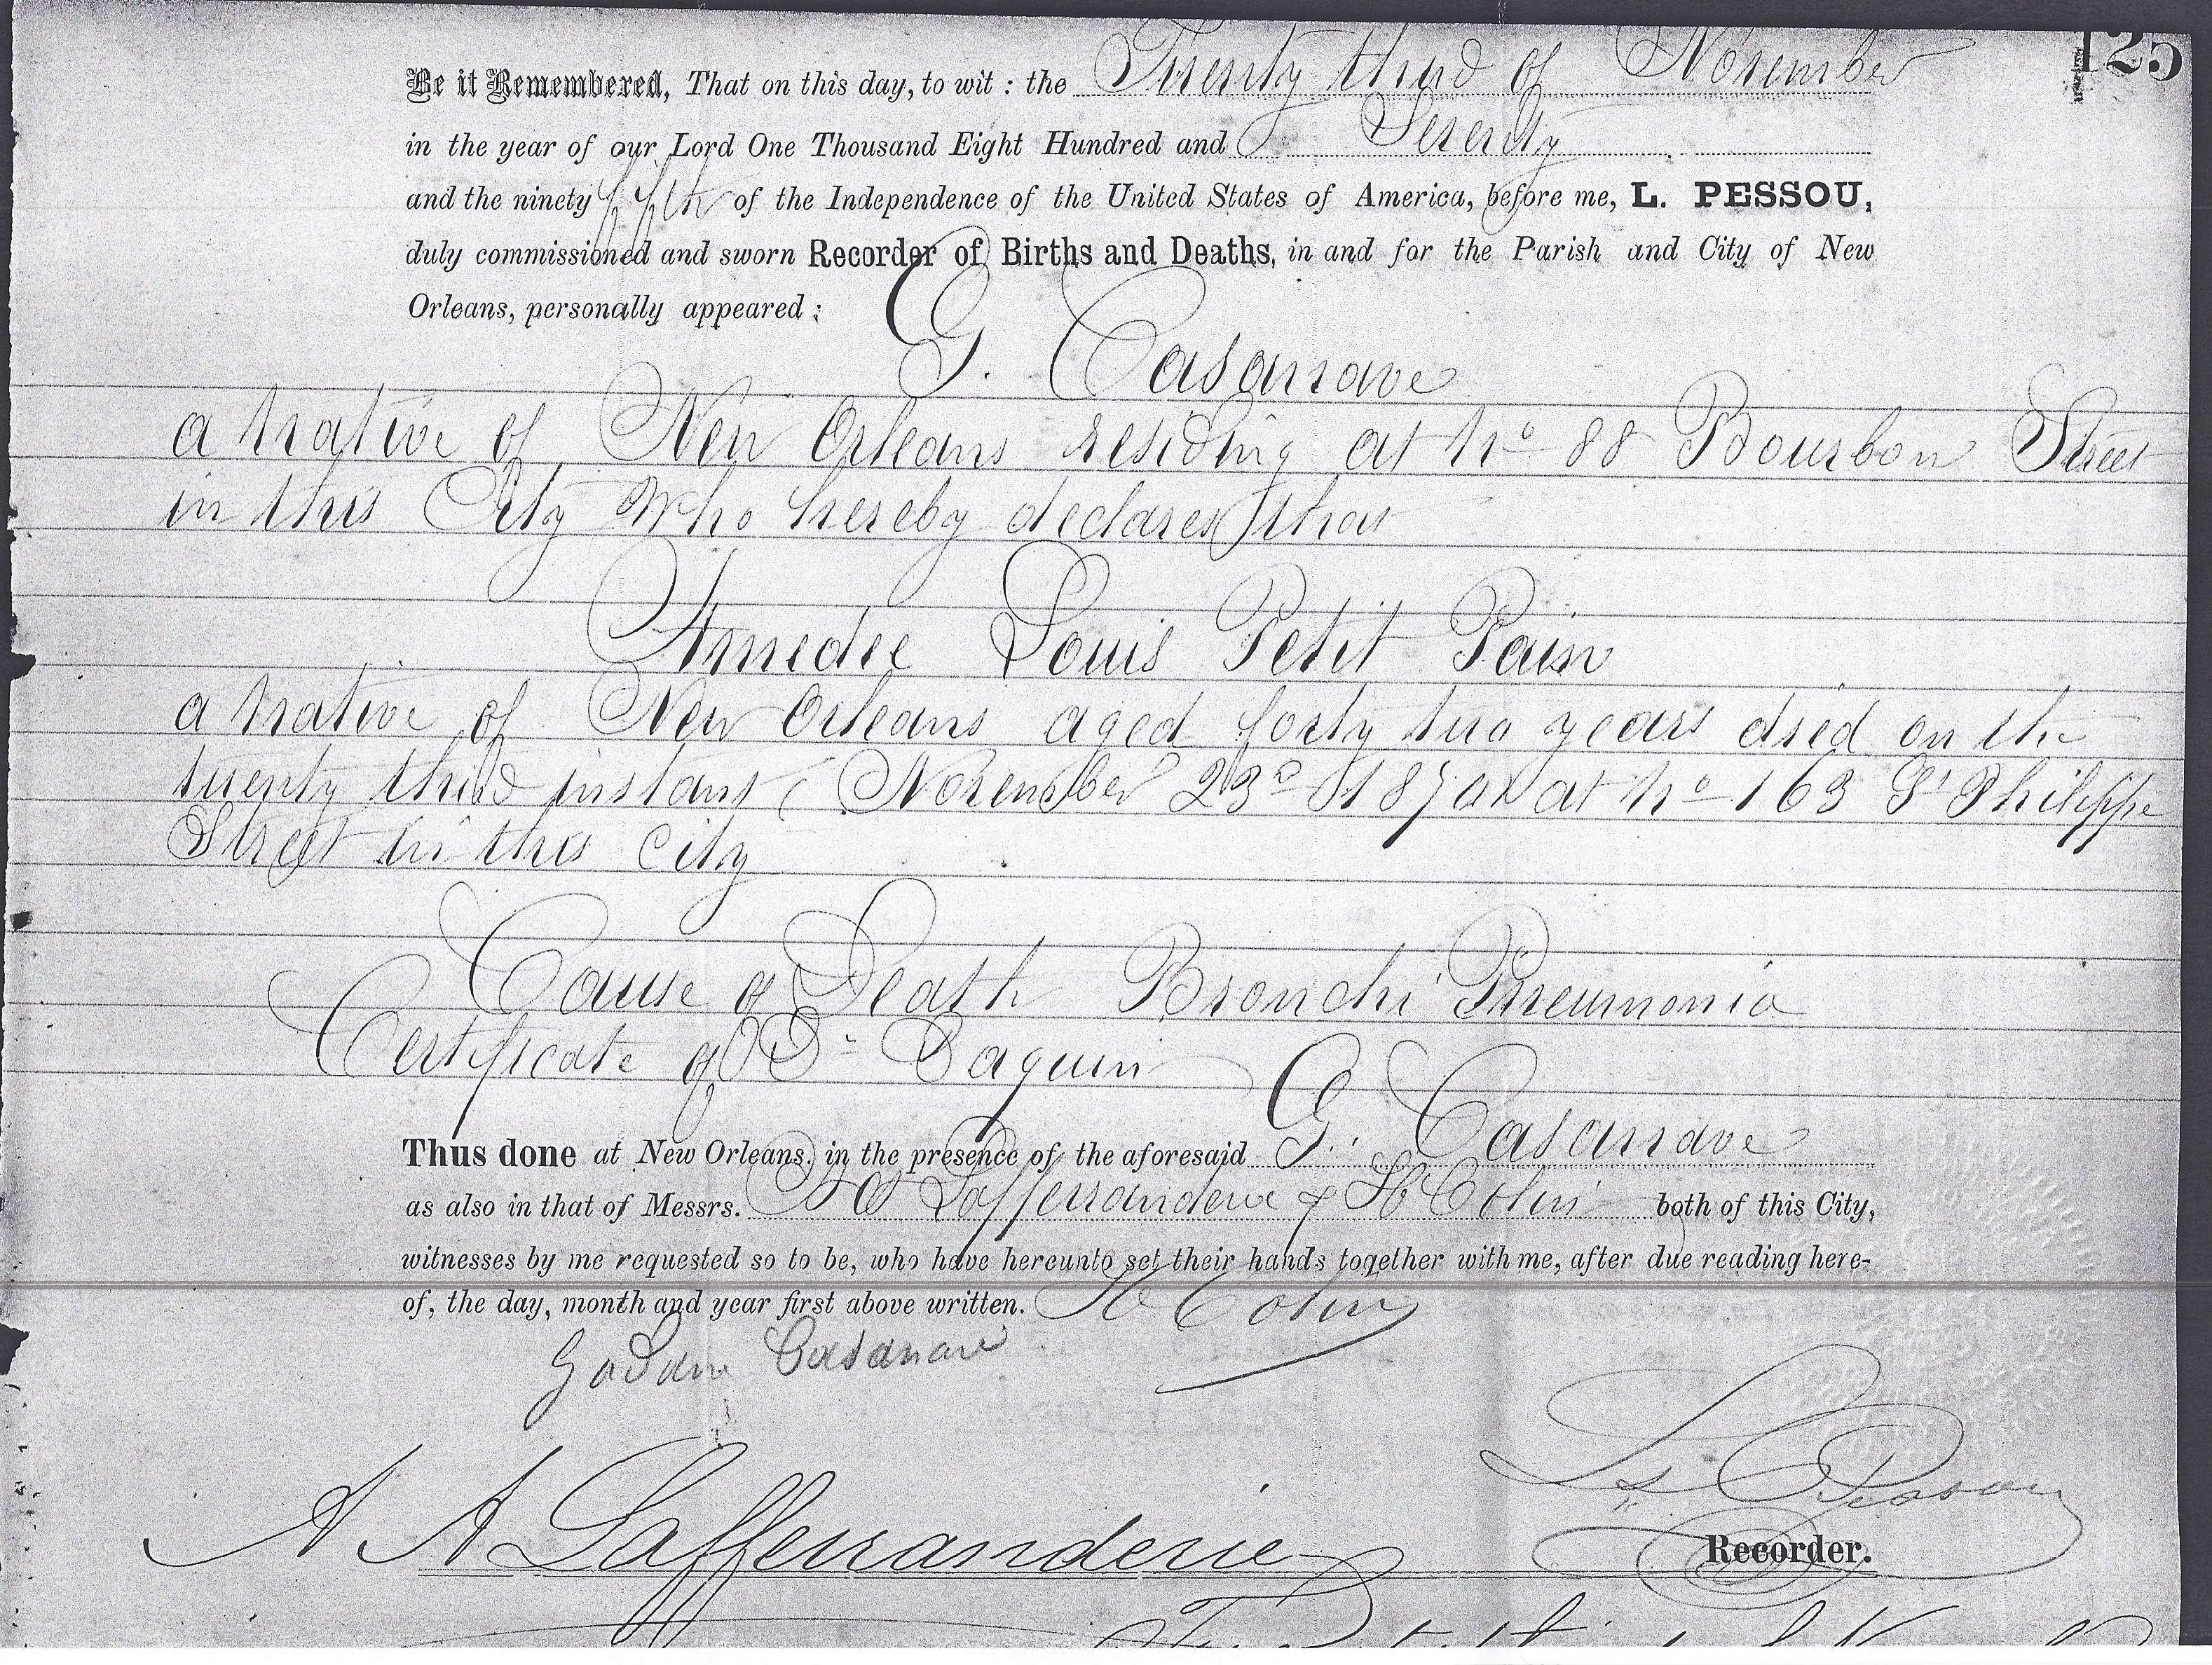 125
Be it Remembered, That on this day, to wit : the Twenty third of November
in the year of our Lord One Thousand Eight Hundred and Seventy
and the ninety fifth of the Independence of the United States of America, before me, L. PESSOU,
duly commissioned and sworn Recorder of Births and Deaths, in and for the Parish and City of New
Orleans, personally appeared :
G. Casanave
a native of New Orleans residing at No 88 Bourbon Street
in this City Who hereby declares that
Amedee Louis Petit Pain
a native of New Orleans aged forty two years died on the
twenty third instant (November 23d 1870) at No 163 St Philippe
Street in this city
Cause of Death Bronchi Pneumonia
Certificate of Dr Paquin
G. Casanave
Thus done at New Orleans, in the presence of the aforesaid
as also in that of Messrs. Lafferranderie & H Colin both of this City,
witnesses by me requested so to be, who have hereunto set their hands together with me, after due reading here-
of, the day, month and year first above written. H Colin
Casanave
A A Lafferranderie
Ls Pessou
Recorder.